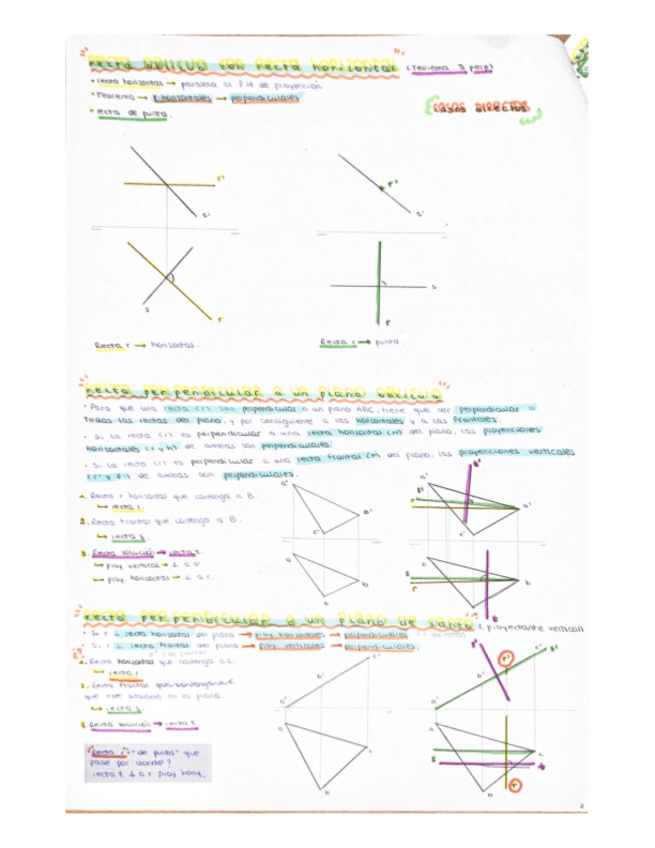 recta oblicua con recta horizontal (teorema 3 perp)
• recta horizontal → paralela al P.H de proyección
• Teorema → horizontales → perpendiculares.
• recta de punta.
casos directos
r'
s'
s
r
r'
s'
s
r
Recta r → horizontal.
Recta r → punta.
recta perpendicular a un plano oblicuo
• Para que una recta (r) sea perpendicular a un plano ABC, tiene que ser perpendicular a
todas las rectas del plano, y por consiguiente a las horizontales y a las frontales.
• Si la recta (r) es perpendicular a una recta horizontal (h) del plano, las proyecciones
horizontales (r y h) de ambas son perpendiculares.
• Si la recta (r) es perpendicular a una recta frontal (m) del plano, las proyecciones verticales
de ambas son perpendiculares.
1. Recta r horizontal que contenga a B.
↳ recta r.
2. Recta frontal que contenga a B.
↳ recta s.
3. Recta solución → recta t.
↳ proy. vertical → ⊥ a s'
↳ proy. horizontal → ⊥ a r.
a'
b'
c'
a
b
c
recta perpendicular a un plano de canto (proyectante vertical)
• Si r ⊥ recta horizontal del plano → proy. horizontales → perpendiculares
• Si r ⊥ recta frontal del plano → proy. verticales → perpendiculares.
1. Recta horizontal que contenga a C.
↳ recta r.
2. Recta frontal
que esté situada en el plano.
↳ recta s.
3. Recta solución → recta t
Recta r: "de punta" que
pase por donde?
recta t ⊥ a r proy horiz.
a'
b'
c'
a
b
c
r'
r